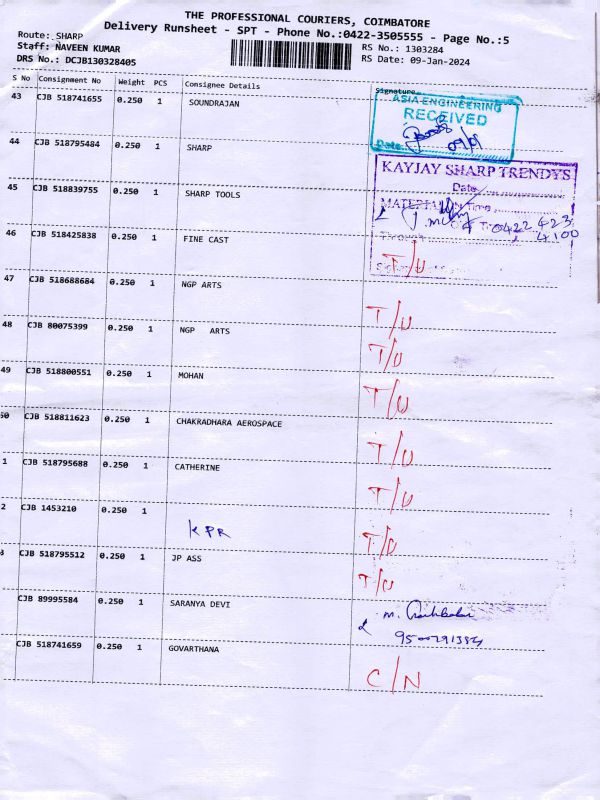 THE PROFESSIONAL COURIERS, COIMBATORE
Delivery Runsheet - SPT - Phone No.:0422-3505555 - Page No.:5
Route: SHARP
Staff: NAVEEN KUMAR
DRS No.: DCJB130328405
RS No.: 1303284
RS Date: 09-Jan-2024
S No Consignment No Weight PCS Consignee Details Signature
43 CJB 518741655 0.250 1 SOUNDRAJAN
ASIA ENGINEERING
RECEIVED
Date: 09/01
44 CJB 518795484 0.250 1 SHARP
KAYJAY SHARP TRENDYS
Date
45 CJB 518839755 0.250 1 SHARP TOOLS
Time
0422 423
4100
Through
46 CJB 518425838 0.250 1 FINE CAST T/U
47 CJB 518688684 0.250 1 NGP ARTS T/U
48 CJB 80075399 0.250 1 NGP ARTS T/U
49 CJB 518800551 0.250 1 MOHAN T/U
50 CJB 518811623 0.250 1 CHAKRADHARA AEROSPACE T/U
1 CJB 518795688 0.250 1 CATHERINE T/U
2 CJB 1453210 0.250 1 KPR T/U
3 CJB 518795512 0.250 1 JP ASS T/U
CJB 89995584 0.250 1 SARANYA DEVI
CJB 518741659 0.250 1 GOVARTHANA C/N